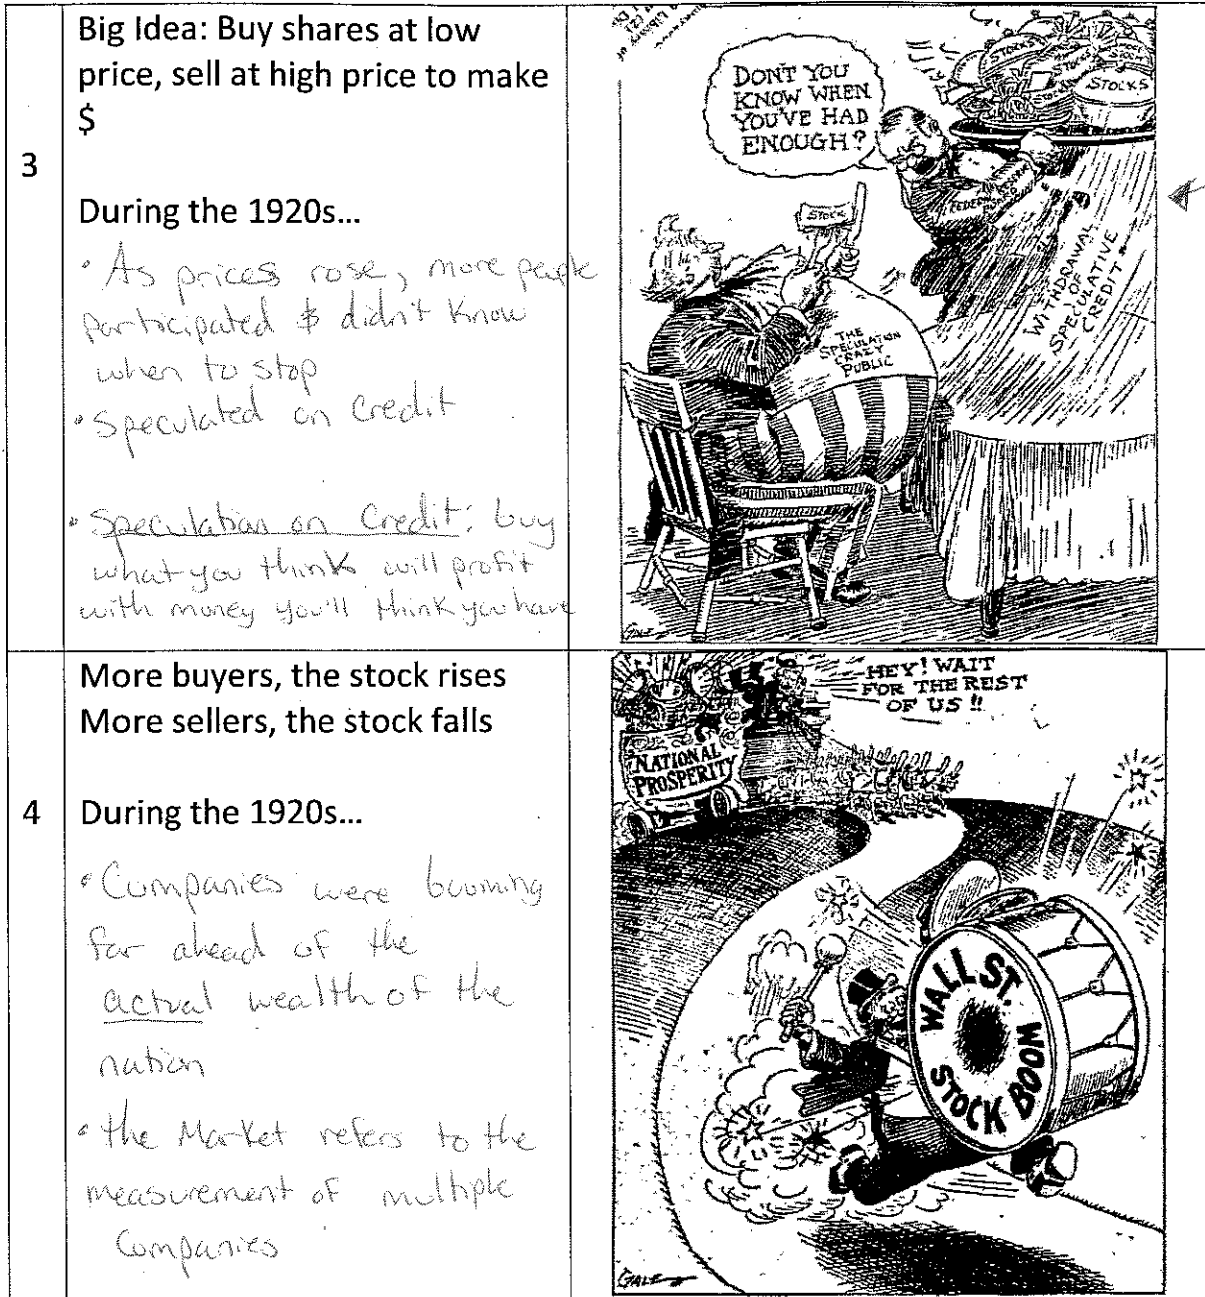 3
Big Idea: Buy shares at low
price, sell at high price to make
$
During the 1920s...
• As prices rose, more people
participated & didn't know
when to stop
• Speculated on Credit
• Speculation on Credit: buy
what you think will profit
with money you'll think you have
DON'T YOU
KNOW WHEN
YOU'VE HAD
ENOUGH?
STOCKS
STOCKS
STOCKS
STOCK
FEDERAL
RESERVE
THE
SPECULATION
CRAZY
PUBLIC
WITHDRAWAL
OF
SPECULATIVE
CREDIT
GALE
4
More buyers, the stock rises
More sellers, the stock falls
During the 1920s...
• Companies were booming
far ahead of the
actual wealth of the
nation
• the Market refers to the
measurement of multiple
Companies
HEY! WAIT
FOR THE REST
OF US!!
NATIONAL
PROSPERITY
WALL ST.
STOCK BOOM
GALE